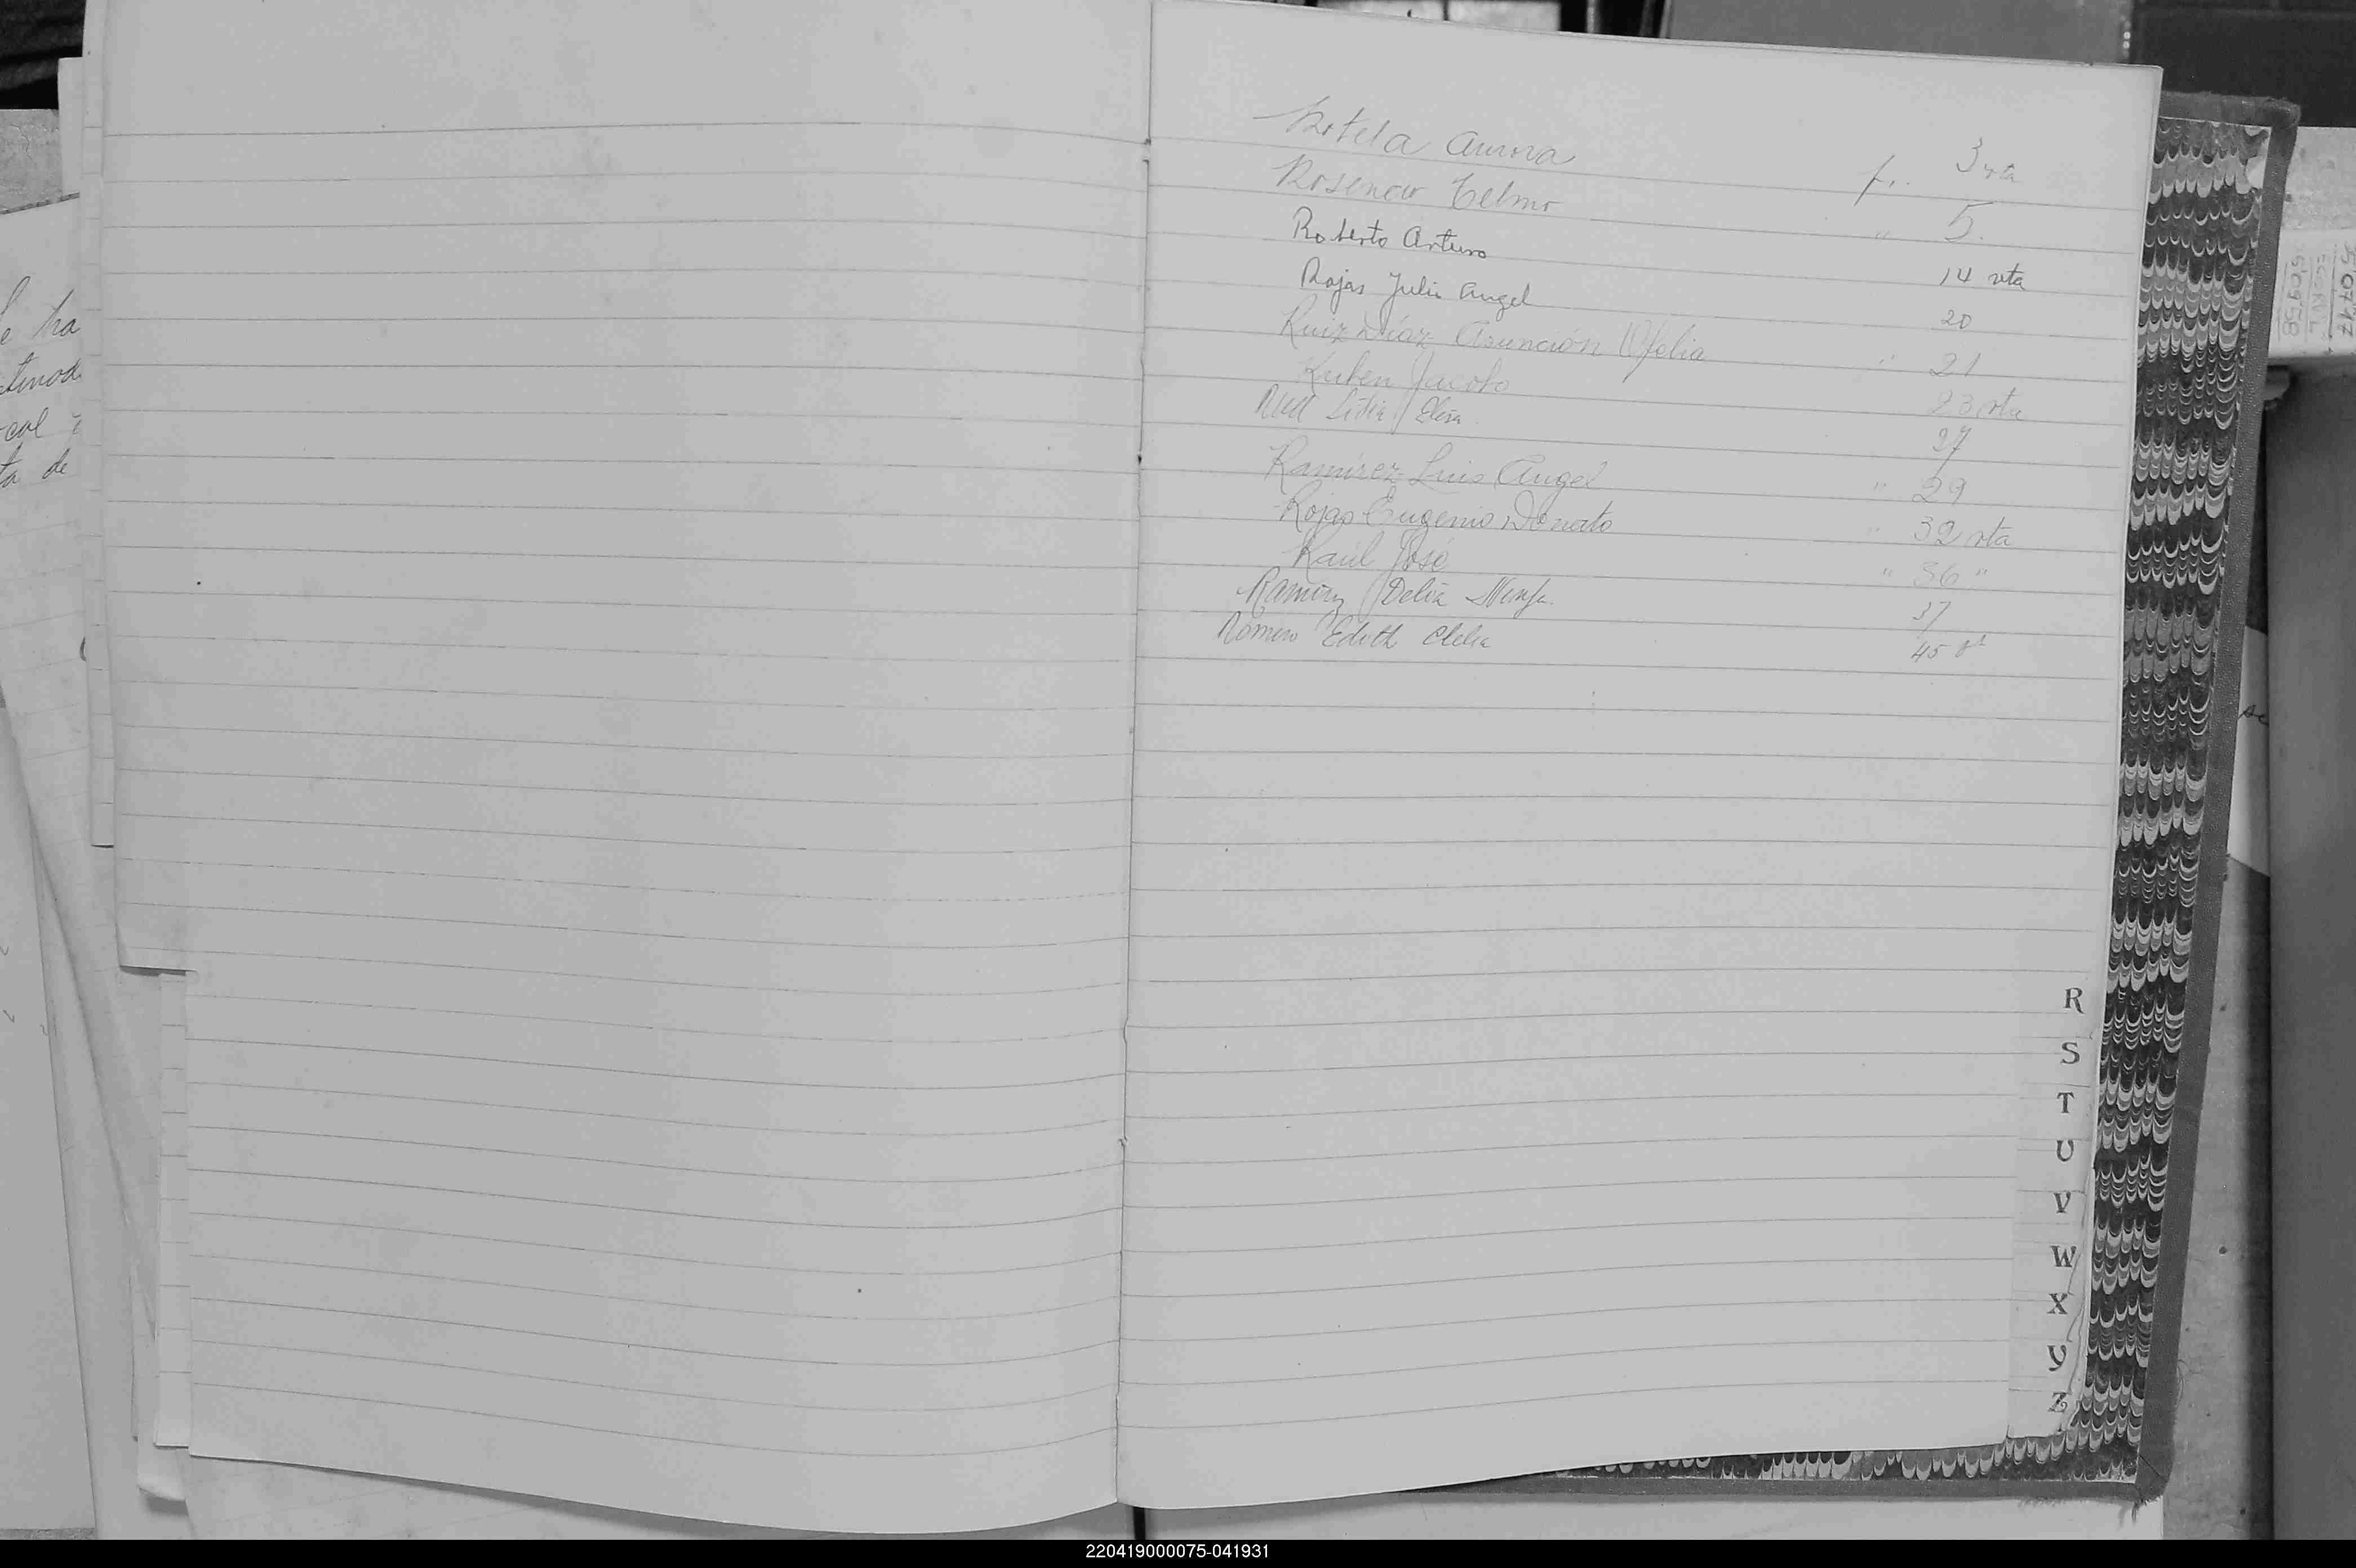 e ha
col
ta de
Rotela Aurora f. 3 vta
Rosenow Telmo " 5.
Roberto Arturo 14 vta
Rojas Julio Angel 20
Ruiz Díaz Asunción Ofelia " 21
Ruben Jacobo 23 vta
Lidia Elisa 27
Ramírez Luis Angel " 29
Rojas Eugenio Donato " 32 vta
Raúl José " 36 "
Ramírez Delia 37
Romero Edith Clelia 45
R
S
T
U
V
W
X
Y
Z
220419000075-041931